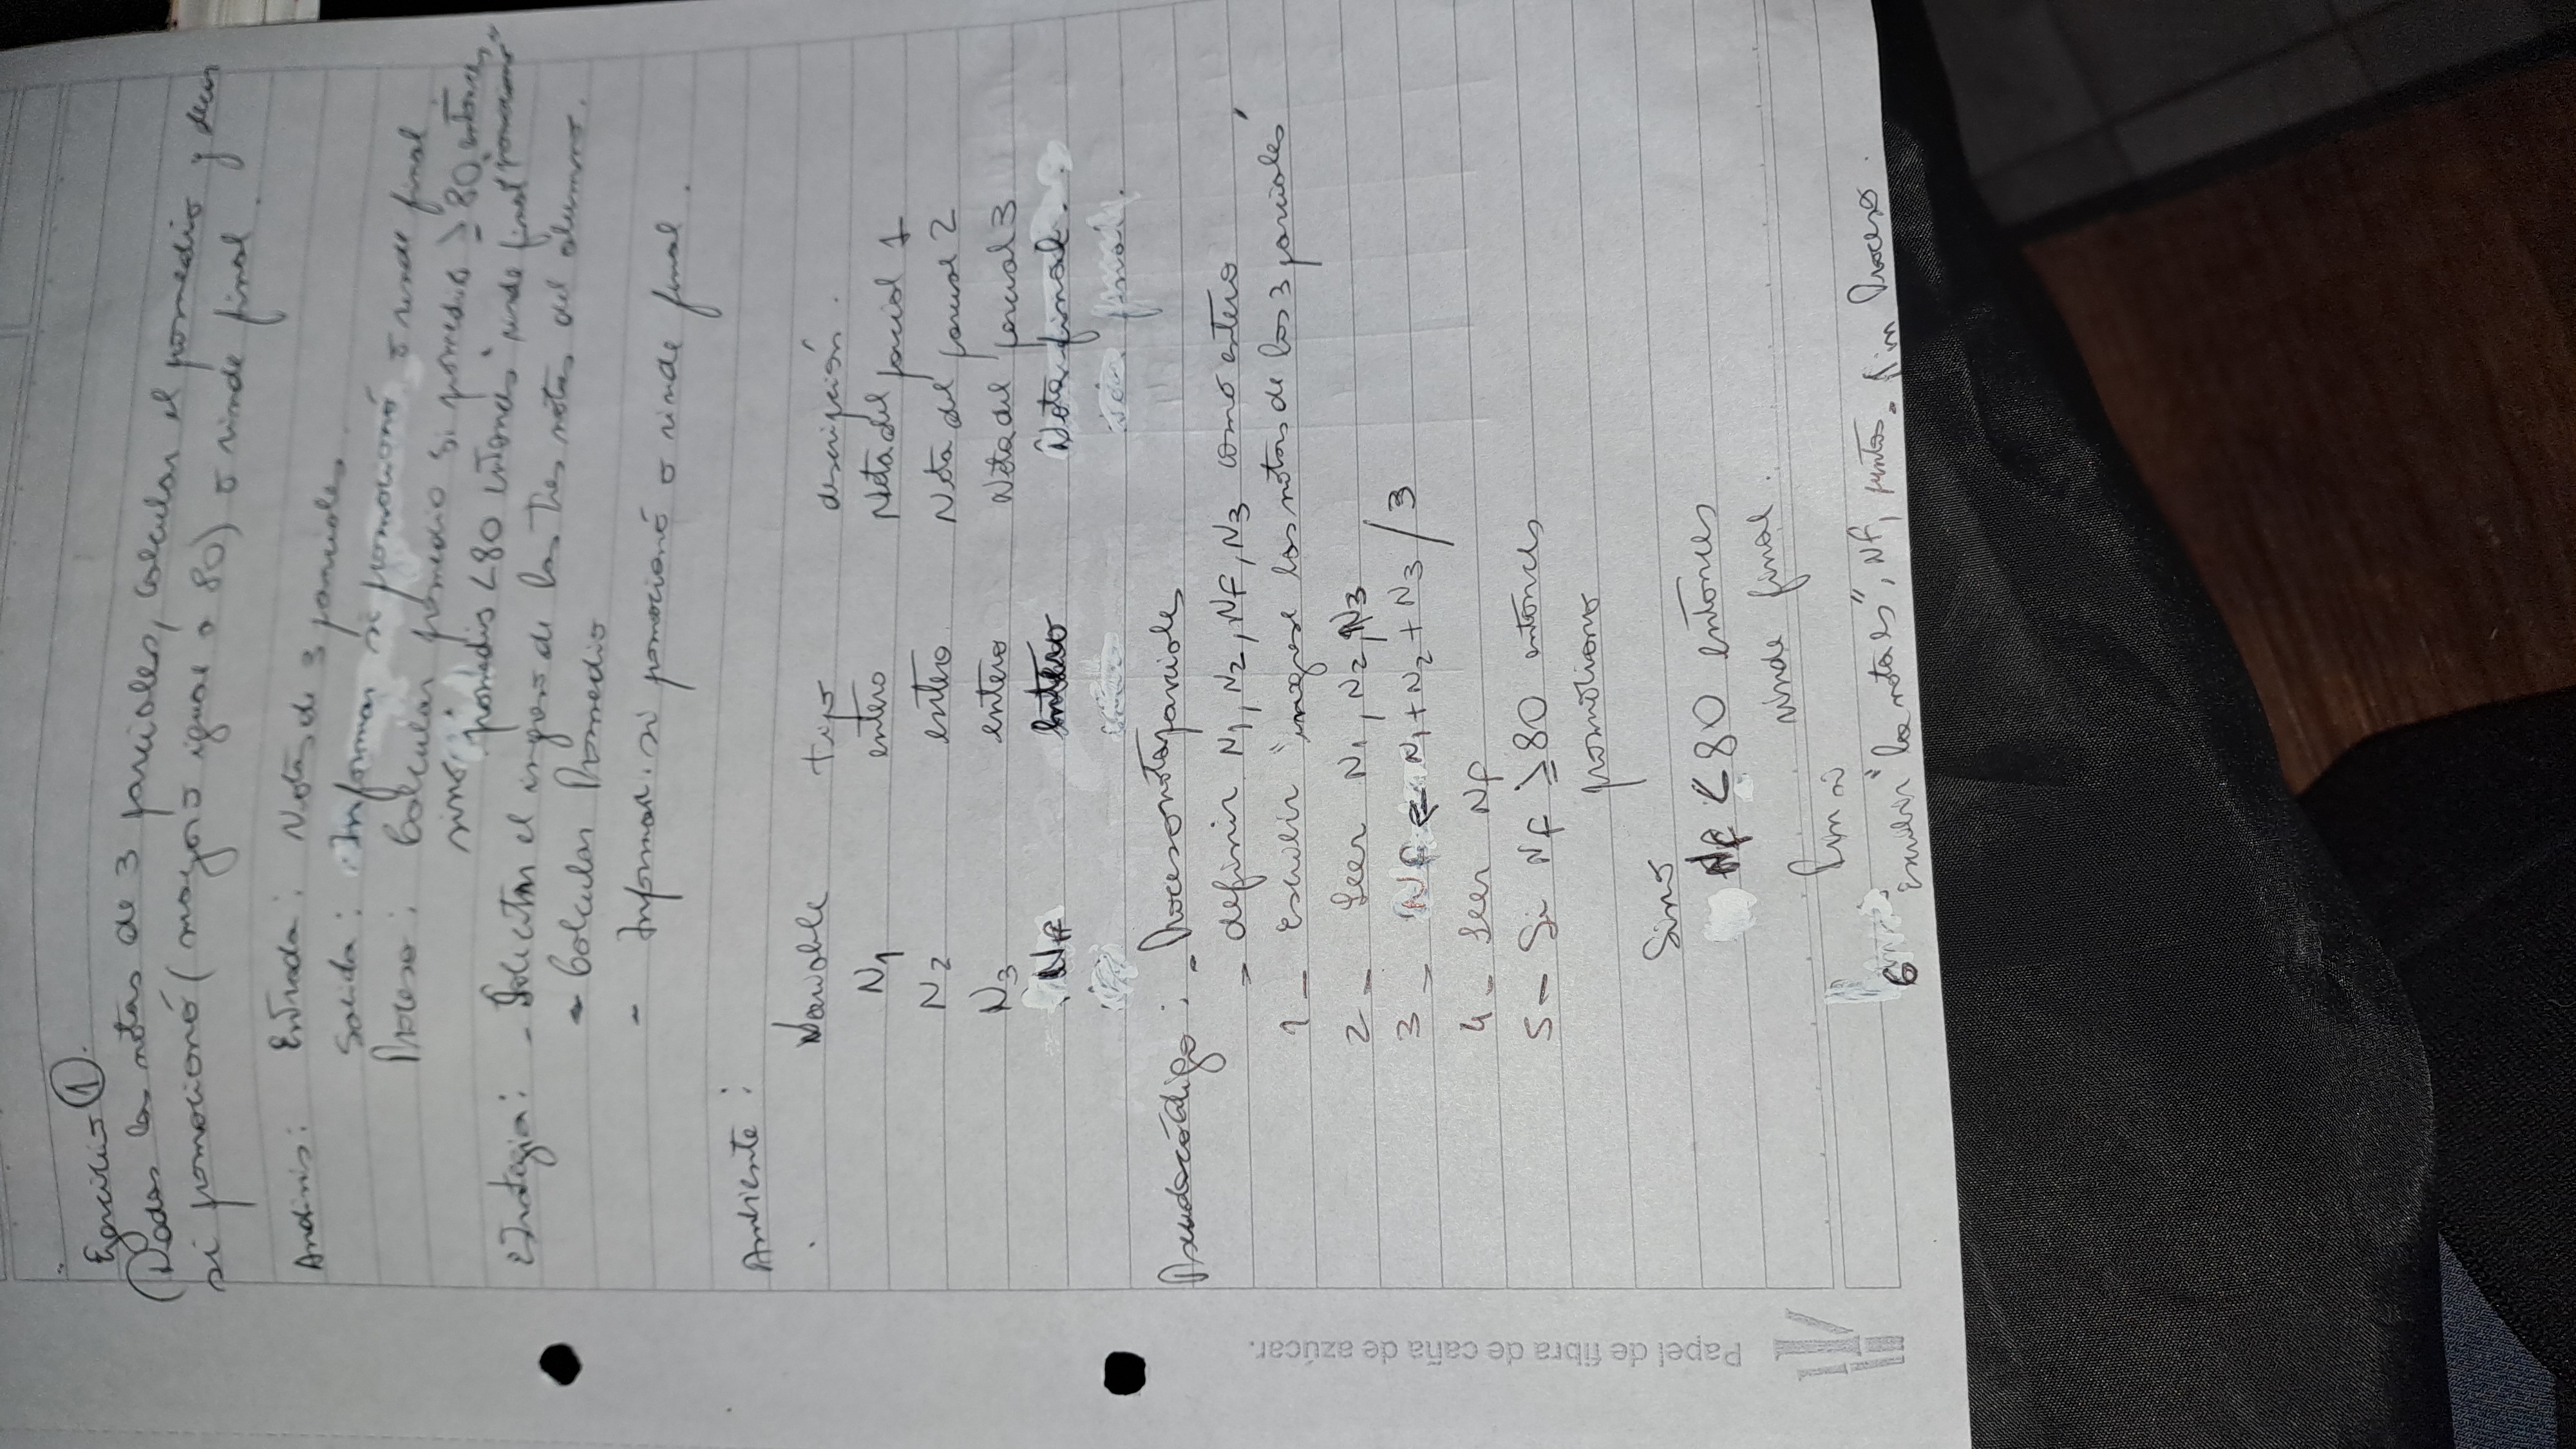 Ejercicio 1.
Dadas las notas de 3 parciales, calcular el promedio y decir
si pomocionó (mayor o igual a 80) o rinde final.
Analisis: Entrada: Notas de 3 parciales.
Salida: Informar si promocionó o rinde final.
Proceso: Calcular promedio si promedio ≥ 80 entonces
"promociono"
sino promedio <80 entonces "rinde final"
Estrategia: - Solicitar el ingreso de las tres notas del alumno.
- Calcular Promedio
- Informar. si pomocionó o rinde final.
Ambiente:
Variable tipo descripción.
N1 entero Nota del parcial 1
N2 entero Nota del parcial 2
N3 entero Nota del parcial 3
NF entero Nota final.
final.
Pseudocódigo: - Proceso notas parciales
- definir N1, N2, NF, N3 como entero
1 - Escribir "ingrese las notas de los 3 parciales"
2 - Leer N1, N2, N3
3 - NF ← N1 + N2 + N3 / 3
4 - Leer NF
5 - Si NF ≥ 80 entonces
promociono
Sino
NF < 80 entonces
rinde final.
Fin si
6 Escribir "la nota es", NF, puntos. Fin Proceso.
Papel de fibra de caña de azúcar.